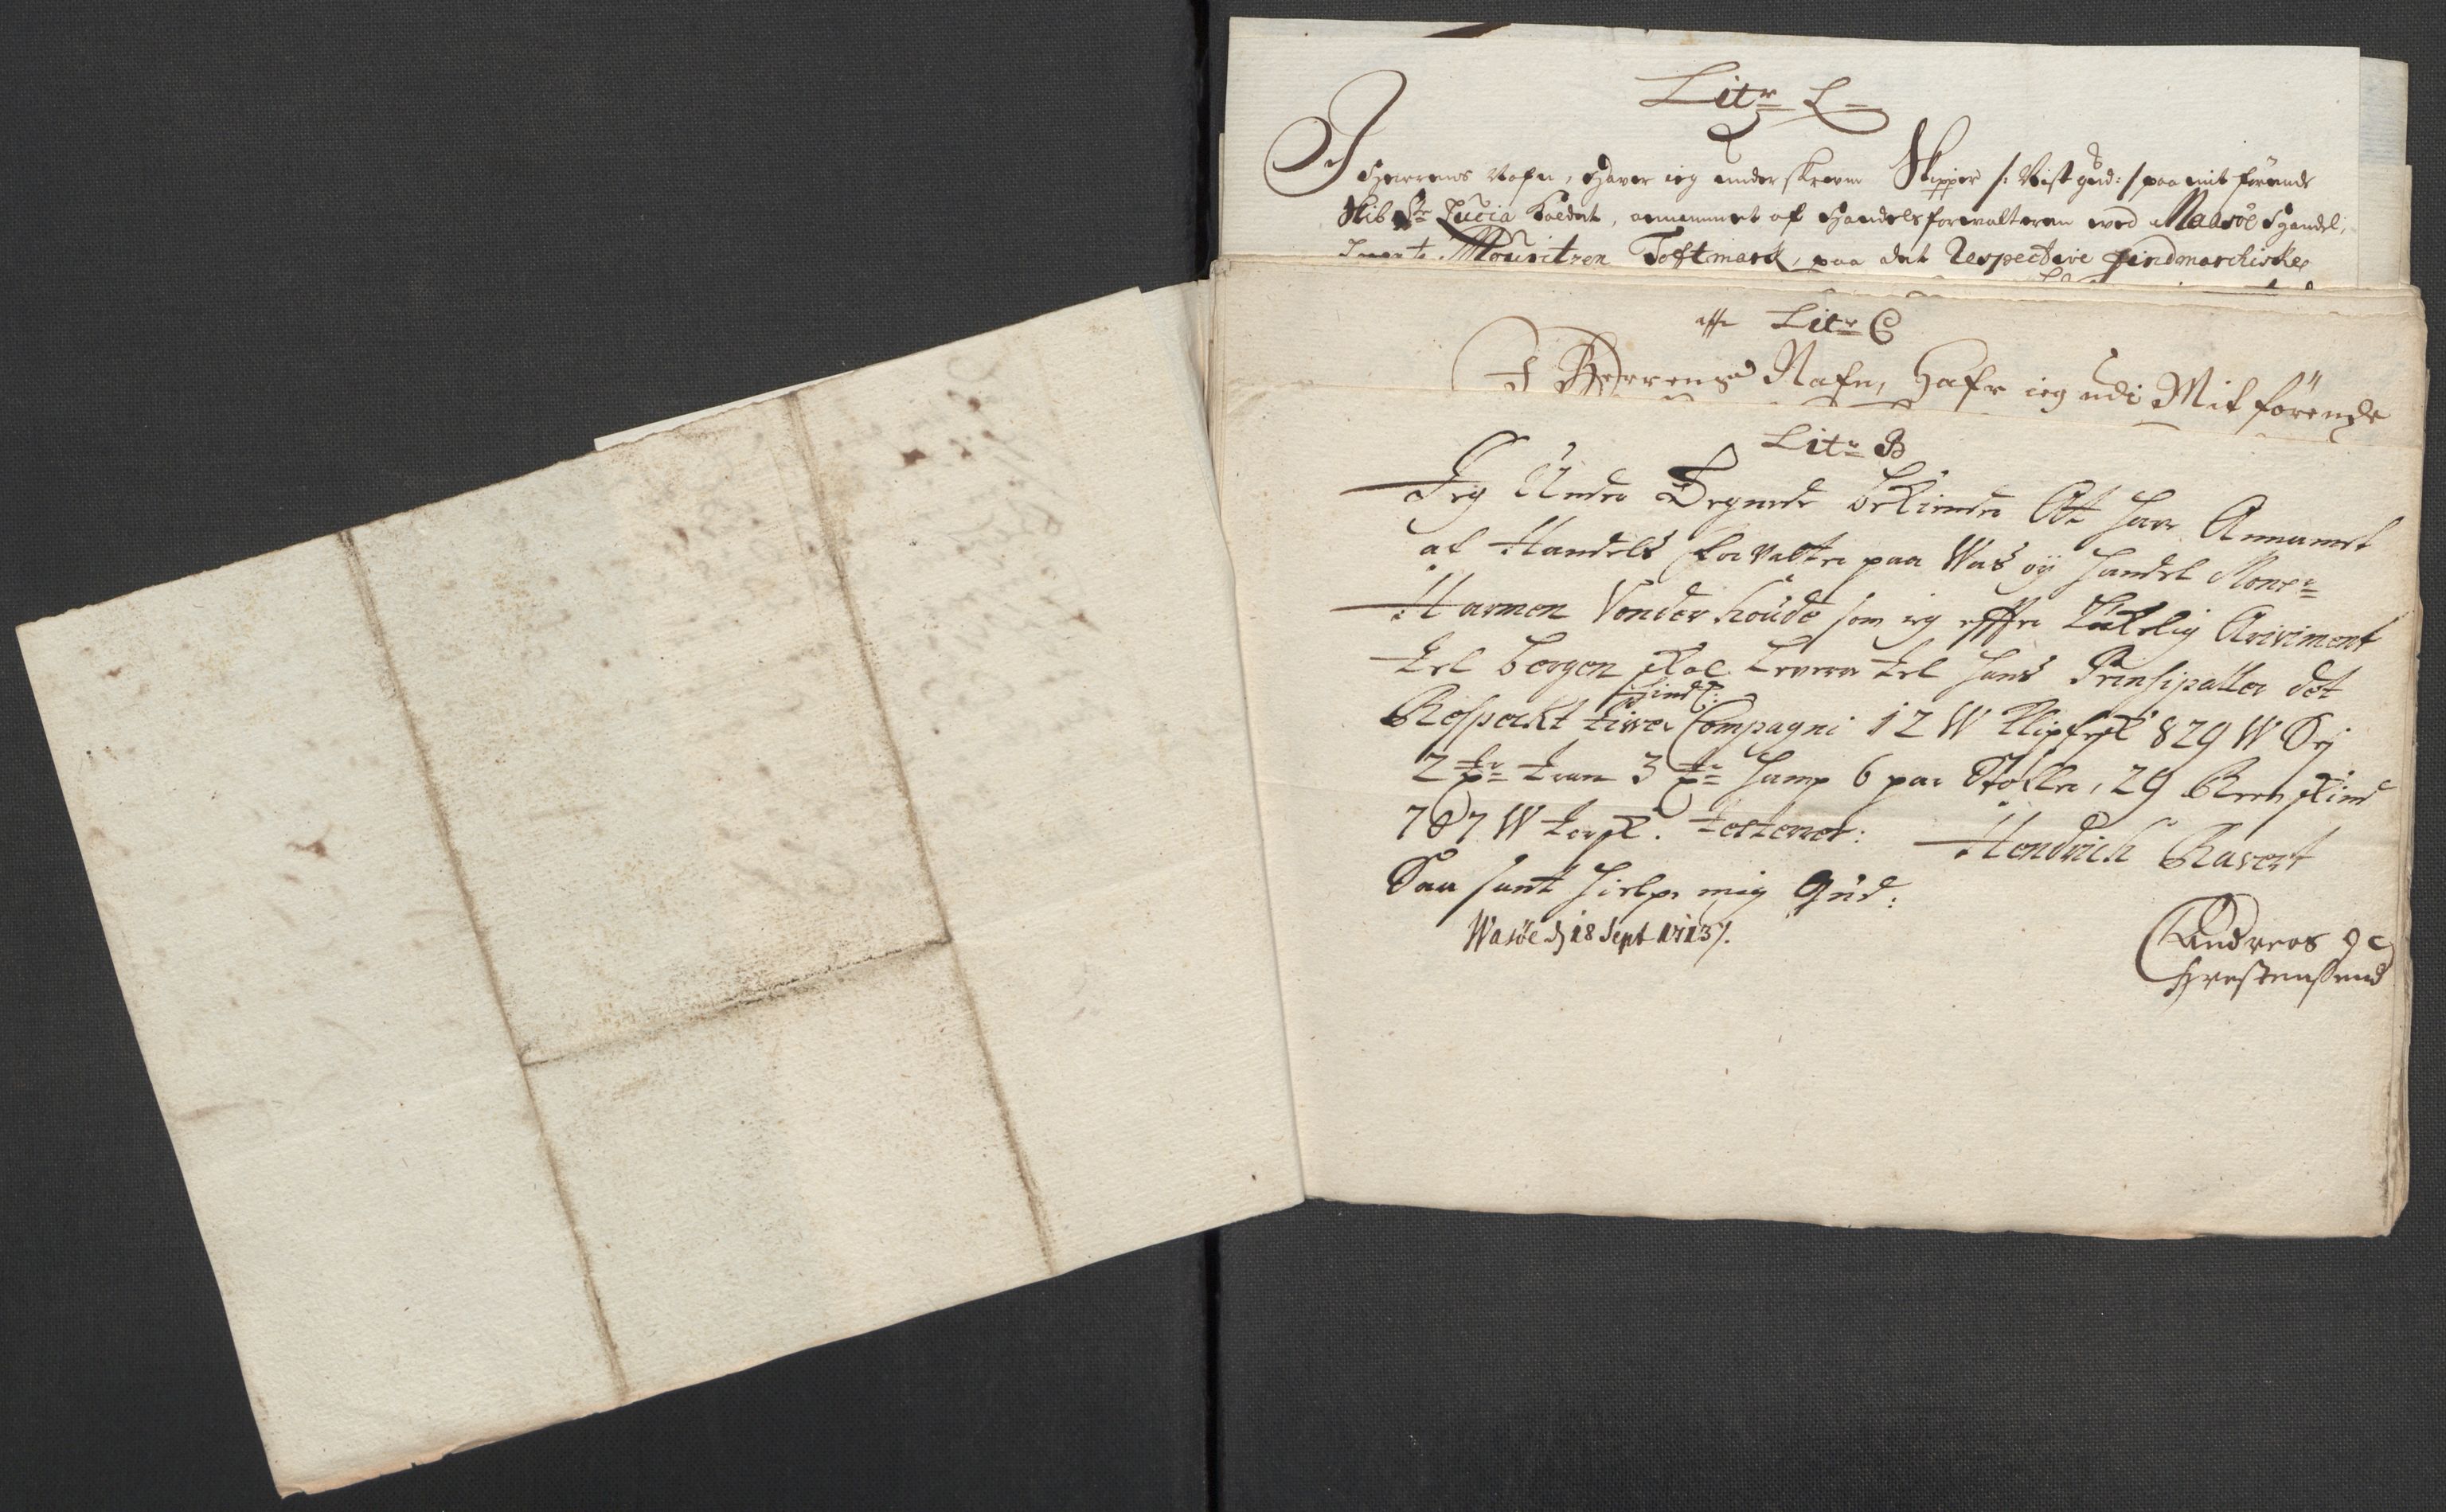 Litr L
I Herrens Nafn, Haver ieg underskrevne Skipper /: Nest gud: / paa mit förende
Skib St: Lucia kaldet, annammet af Handelsforvalteren ved Maasöe Handel,
Mouritzen Toftmarck, paa det Respective findmarchiske
Litr C
I Herrens Nafn, Hafr ieg udi Mit förende
Litr B
Jeg Under Tegnede bekiender Att have Annamet
af Handels forvalter paa Was öÿ handel Monsr
Harmen Vonder houde som ieg effter Lÿkelig Arriviment
tel bergen skal Levere tel hans Prinsipaller det
Respeckt tiver findl: Compagni 12 W klipfisk 829 W Sej
2 tr tran 3 tr hamp 6 par Stöfler, 29 Reenskind
787 W torsk. testerer: Hendrich Ravert
Saa sant hielpe mig Gud:
Wasöe d 18 Sept 1713/.
Andreas
Chrestensend